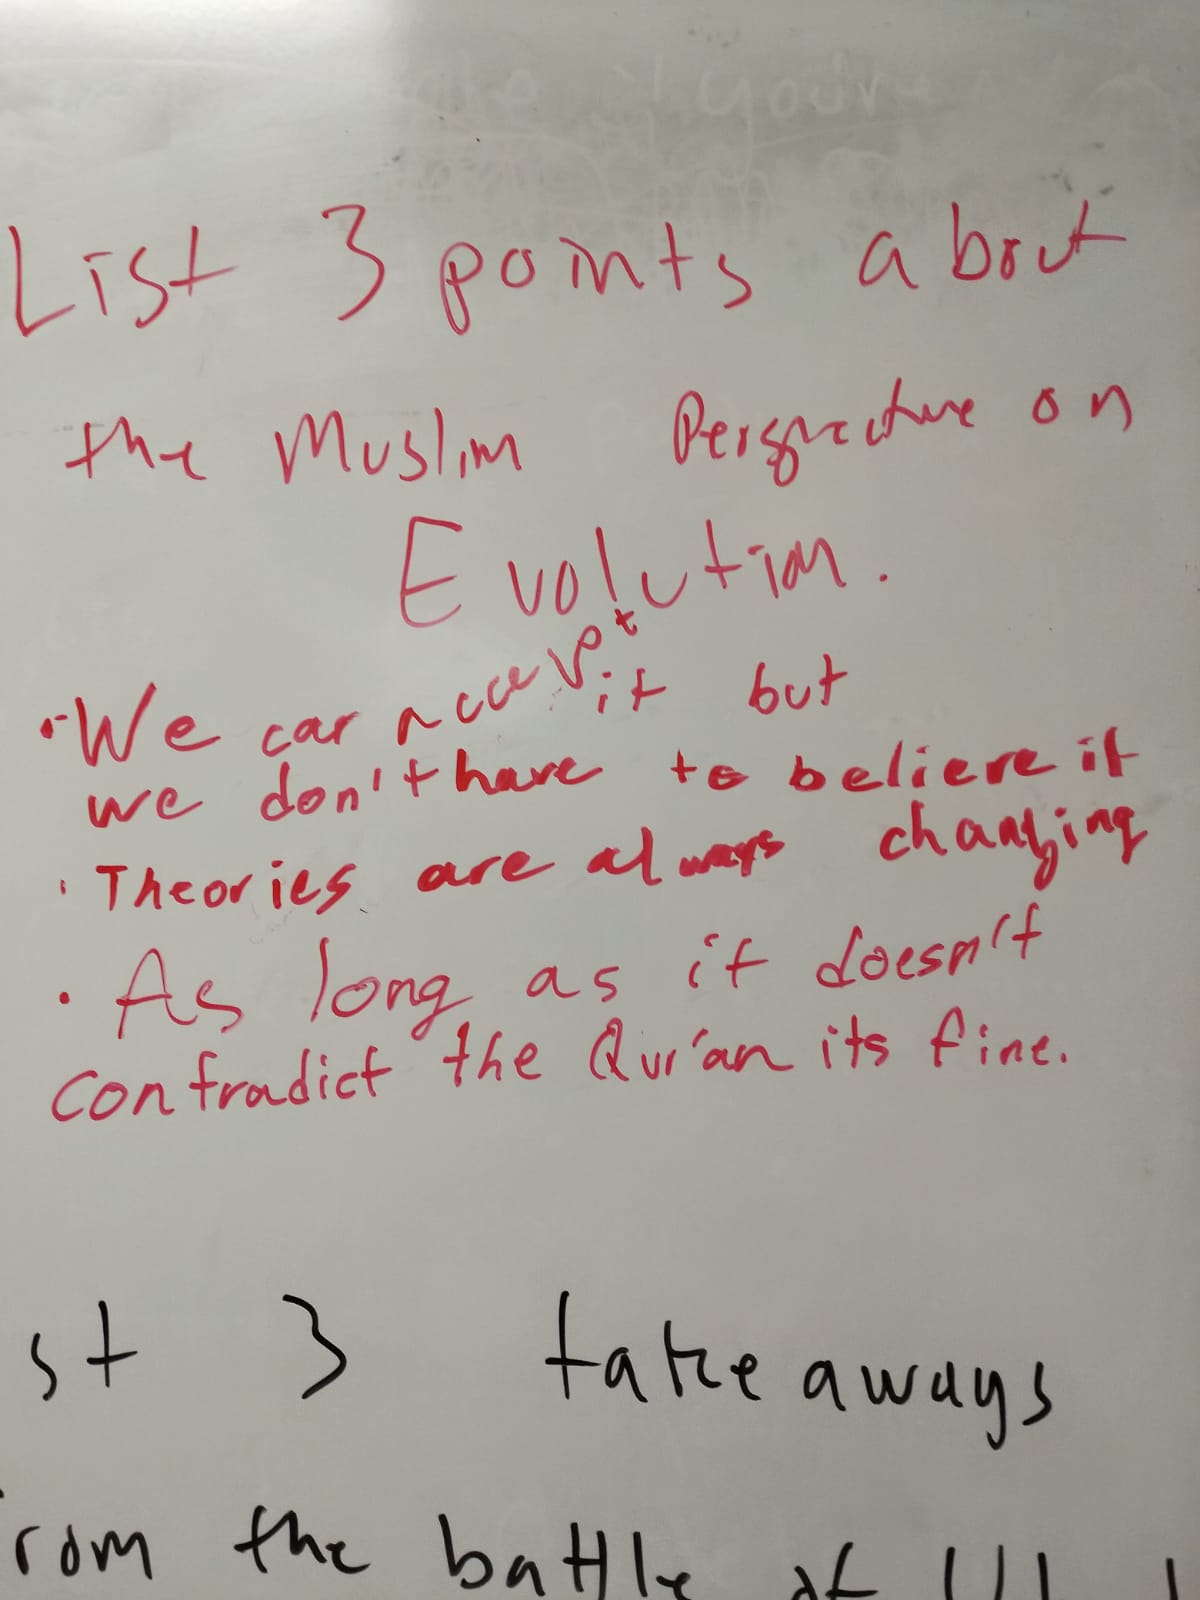 List 3 points about
the Muslim Perspective on
Evolution.
• We can accept it but
we don't have to believe it
• Theories are always changing
• As long as it doesn't
contradict the Qur'an its fine.
st 3 takeaways
rom the battle of